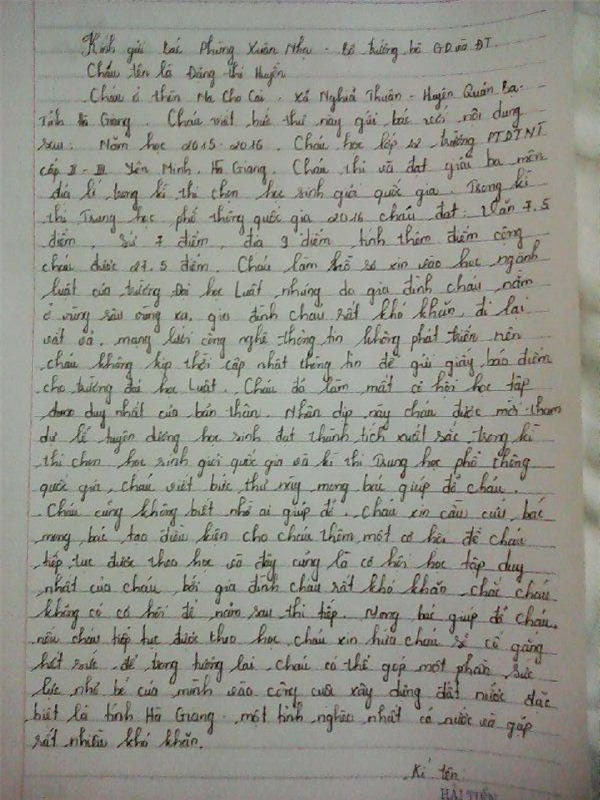 Kính gửi Bác Phùng Xuân Nhạ - Bộ trưởng bộ GD và ĐT.
Cháu tên là Đặng thị Huyền
Cháu ở thôn Na Cho Cai - Xã Nghĩa Thuận - Huyện Quản Bạ -
Tỉnh Hà Giang. Cháu viết bức thư này gửi bác với nội dung
sau: Năm học 2015-2016. Cháu học lớp 12 trường PTDTNT
cấp II - III Yên Minh, Hà Giang. Cháu thi và đạt giải ba môn
địa lí trong kì thi chọn học sinh giỏi quốc gia. Trong kì
thi Trung học phổ thông quốc gia 2016 cháu đạt: Văn 7,5
điểm, Sử 7 điểm, địa 9 điểm, tính thêm điểm cộng
cháu được 27,5 điểm. Cháu làm hồ sơ xin vào học ngành
luật của trường Đại học Luật nhưng do gia đình cháu nằm
ở vùng sâu vùng xa, gia đình cháu rất khó khăn, đi lại
vất vả, mạng lưới công nghệ thông tin không phát triển nên
cháu không kịp thời cập nhật thông tin để gửi giấy báo điểm
cho trường đại học Luật. Cháu đã làm mất cơ hội học tập
duy nhất của bản thân. Nhân dịp này cháu được mời tham
dự lễ tuyên dương học sinh đạt thành tích xuất sắc trong kì
thi chọn học sinh giỏi quốc gia và kì thi Trung học phổ thông
quốc gia, cháu viết bức thư này mong bác giúp đỡ cháu.
Cháu cũng không biết nhờ ai giúp đỡ. Cháu xin cầu cứu bác
mong bác tạo điều kiện cho cháu thêm một cơ hội để cháu
tiếp tục được theo học và đây cũng là cơ hội học tập duy
nhất của cháu, bởi gia đình cháu rất khó khăn, chắc cháu
không có cơ hội để năm sau thi tiếp. Mong bác giúp đỡ cháu,
nếu cháu tiếp tục được theo học, cháu xin hứa cháu sẽ cố gắng
hết sức để trong tương lai cháu có thể góp một phần sức
lực nhỏ bé của mình vào công cuộc xây dựng đất nước đặc
biệt là tỉnh Hà Giang - một tỉnh nghèo nhất cả nước và gặp
rất nhiều khó khăn.
Kí tên
HẢI TIẾN